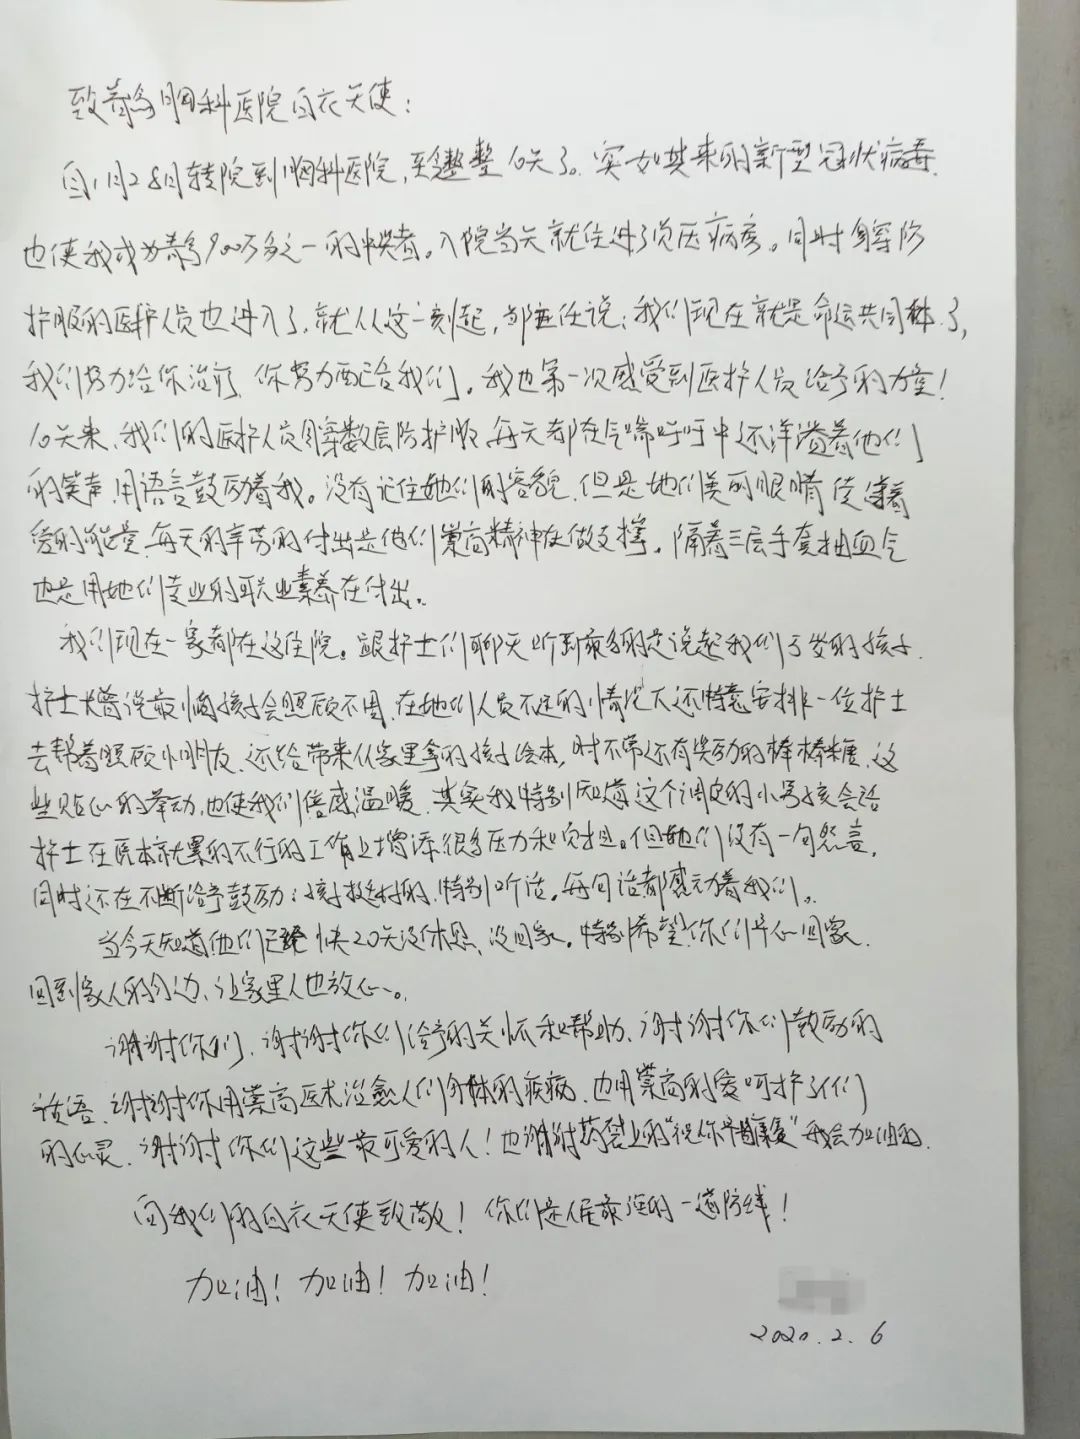 致青岛胸科医院白衣天使：
自1月28日转院到胸科医院，至今整整10天了。突如其来的新型冠状病毒，
也使我成为青岛900万多之一的中奖者。入院当天就住进了负压病房。同时身穿防
护服的医护人员也进入了，就从这一刻起，邹主任说：我们现在就是命运共同体了，
我们努力给你治疗，你努力配合我们。我也第一次感受到医护人员给予的力量！
10天来，我们的医护人员身穿数层防护服，每天都在气喘吁吁中还洋溢着他们
的笑声，用语言鼓励着我。没有记住她们的容貌，但是她们美丽眼睛传递着
爱的能量，每天的辛劳的付出是他们崇高精神在做支撑。隔着三层手套抽血气
也是用她们专业的职业素养在付出。
我们现在一家都在这住院。跟护士们聊天听到最多的是说起我们5岁的孩子，
护士长曾说最怕孩子会照顾不周，在她们人员不足的情况下还特意安排一位护士
去帮着照顾小朋友，还给带来从家里拿的孩子绘本，时不常还有奖励的棒棒糖，这
些贴心的举动，也使我们倍感温暖，其实我特别知道这个调皮的小男孩会给
护士在原本就累的不行的工作上增添很多压力和负担。但她们没有一句怨言，
同时还在不断给予鼓励：孩子挺好的，特别听话。每句话都感动着我们。
当今天知道他们已经快20天没休息，没回家。特别希望你们早些回家，
回到家人的身边，让家里人也放心。
谢谢你们，谢谢你们给予的关怀和帮助，谢谢你们鼓励的
话语，谢谢你用崇高医术治愈人们身体的疾病，也用崇高的爱呵护了人们
的心灵，谢谢你们这些最可爱的人！也谢谢药袋上的“祝你早日康复”我会加油的，
向我们的白衣天使致敬！你们是健康路的一道防线！
加油！加油！加油！
2020.2.6